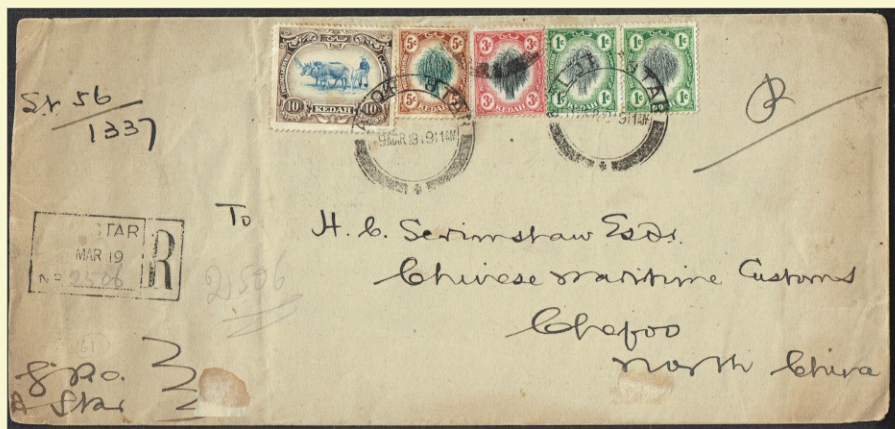 10 KEDAH 10
5c 5c KEDAH
3c 3c KEDAH
1c 1c 1c 1c KEDAH
1c 1c 1c 1c KEDAH
ALOR STAR
9 MAR 19. 911AM
STAR
56
1337
R
STAR
MAR 19
No 2506
R
2506
To
H. C. Scrimshaw Esqr.
Chinese Maritime Customs
Chefoo
North China
61
G.P.O.
A Star